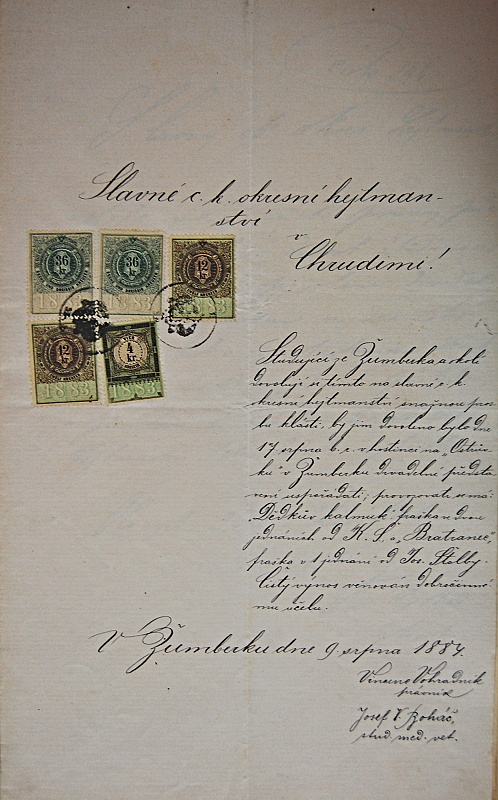 Slavné c. k. okresní hejtman-
ství
v
Chrudimi!
36
kr
36
kr
12
kr
1883
1883
1883
12
kr
4
kr
1883
1883
Studující ze Žumberka a okolí
dovolují si tímto na slavné c. k.
okresní hejtmanství snažnou pros-
bu klásti, by jim dovoleno bylo dne
17. srpna t. r. v hostinci na „Ostrův-
ku" v Žumberku divadelní předsta-
vení uspořádati; provozovati se má:
„Dědkův kalmuk", fraška o dvou
jednáních od K. S. a „Bratranec",
fraška o 1 jednání od Jos. Štolby.
Čistý výnos věnován dobročinné-
mu účelu.
V Žumberku dne 9. srpna 1884.
Vincenc Vohradník
právník
Josef V. Boháč,
stud. med. vet.